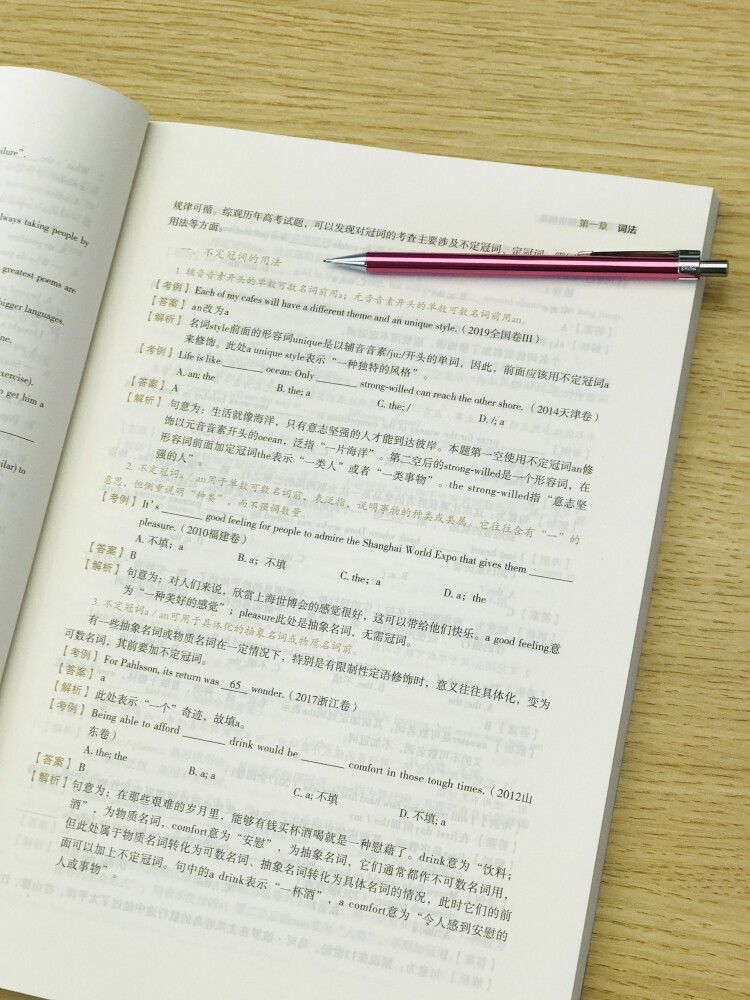 ailure".
lways taking people by
greatest poems are
bigger languages.
ne.
exercise).
o get him a
ilar) to
第一章 词法
规律可循。综观历年高考试题，可以发现对冠词的考查主要涉及不定冠词、定冠词、
用法等方面。
一、不定冠词的用法
1. 辅音音素开头的单数可数名词前用a；元音音素开头的单数可数名词前用an。
【考例】Each of my cafes will have a different theme and an unique style.（2019全国卷III）
【答案】an改为a
【解析】名词style前面的形容词unique是以辅音音素/ju:/开头的单词，因此，前面应该用不定冠词a
来修饰。此处a unique style表示“一种独特的风格”。
【考例】Life is like ________ ocean: Only ________ strong-willed can reach the other shore.（2014天津卷）
A. an; the B. the; a C. the; / D. /; a
【答案】A
【解析】句意为：生活就像海洋，只有意志坚强的人才能到达彼岸。本题第一空使用不定冠词an修
饰以元音音素开头的ocean，泛指“一片海洋”。第二空后的strong-willed是一个形容词，在
形容词前面加定冠词the表示“一类人”或者“一类事物”。the strong-willed指“意志坚
强的人”。
2. 不定冠词a / an用于单数可数名词前，表泛指，说明事物的种类或类属。它往往含有“一”的
意思，但侧重说明“种类”，而不强调数量。
【考例】It's ________ good feeling for people to admire the Shanghai World Expo that gives them ________
pleasure.（2010福建卷）
A. 不填；a B. a；不填 C. the；a D. a；the
【答案】B
【解析】句意为：对人们来说，欣赏上海世博会的感觉很好，这可以带给他们快乐。a good feeling意
为“一种美好的感觉”；pleasure此处是抽象名词，无需冠词。
3. 不定冠词a / an可用于具体化的抽象名词或物质名词前。
有一些抽象名词或物质名词在一定情况下，特别是有限制性定语修饰时，意义往往具体化，变为
可数名词，其前要加不定冠词。
【考例】For Pahlsson, its return was 65 wonder.（2017浙江卷）
【答案】a
【解析】此处表示“一个”奇迹，故填a。
【考例】Being able to afford ________ drink would be ________ comfort in those tough times.（2012山
东卷）
A. the; the B. a; a C. a; 不填 D. 不填; a
【答案】B
【解析】句意为：在那些艰难的岁月里，能够有钱买杯酒喝就是一种慰藉了。drink意为“饮料；
酒”，为物质名词，comfort意为“安慰”，为抽象名词，它们通常都作不可数名词用，
但此处属于物质名词转化为可数名词、抽象名词转化为具体名词的情况，此时它们的前
面可以加上不定冠词。句中的a drink表示“一杯酒”，a comfort意为“令人感到安慰的
人或事物”。